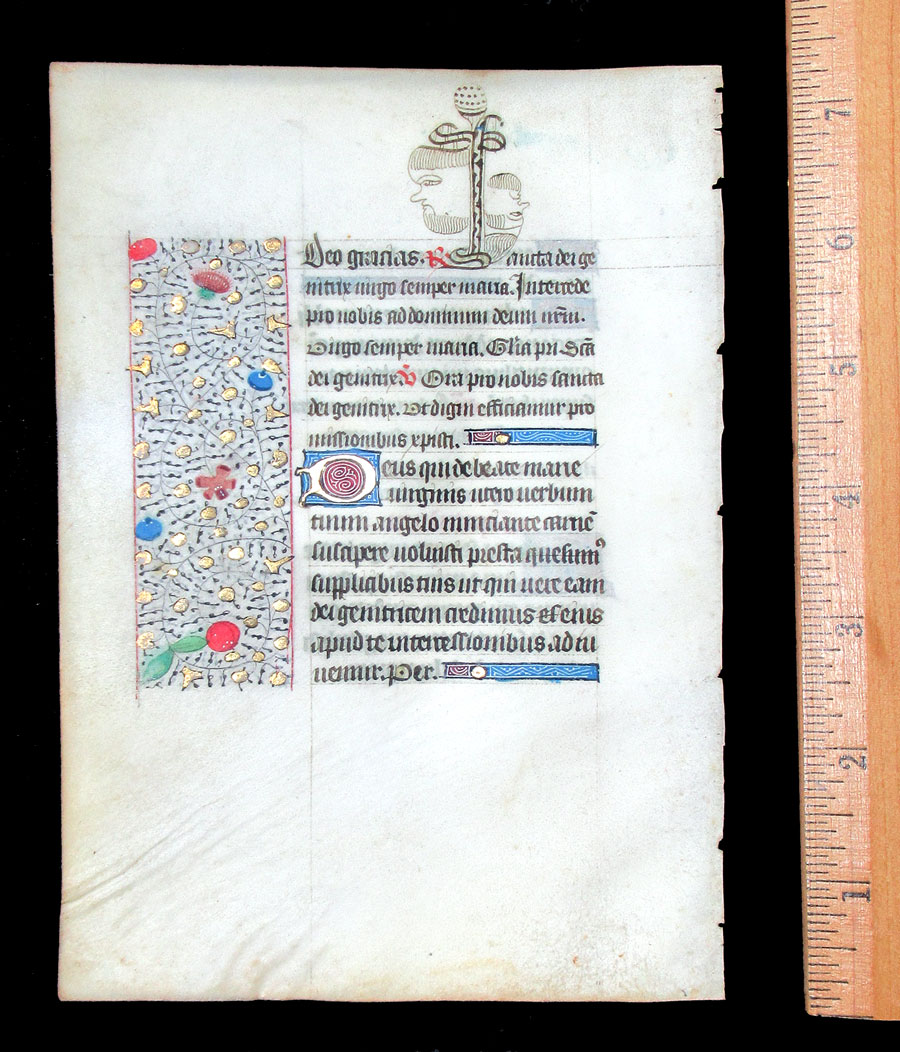 Deo gracias. R Sancta dei ge
nitrix virgo semper maria. Intercede
pro nobis ad dominum deum nrm̄.
Virgo semper maria. Glia pri Scā
dei genitrix. V Ora pro nobis sancta
dei genitrix. Ut digni efficiamur pro
missionibus xpisti.
Deus qui de beate marie
virginis utero verbum
tuum angelo nunciante carnē
suscipere voluisti presta quesumꝰ
supplicibus tuis ut qui vere eam
dei genitricem credimus et eius
apud te intercessionibus adiu
vemur. Per.
7
6
5
4
3
2
1